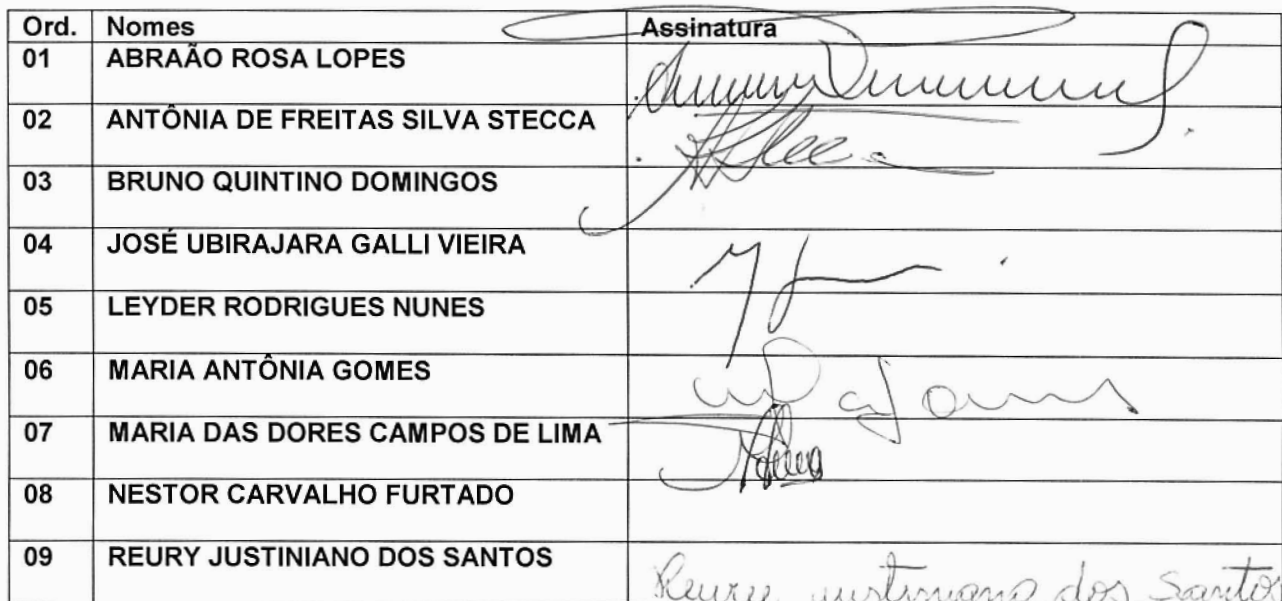 Ord. Nomes Assinatura
01 ABRAÃO ROSA LOPES
02 ANTÔNIA DE FREITAS SILVA STECCA
03 BRUNO QUINTINO DOMINGOS
04 JOSÉ UBIRAJARA GALLI VIEIRA
05 LEYDER RODRIGUES NUNES
06 MARIA ANTÔNIA GOMES
07 MARIA DAS DORES CAMPOS DE LIMA
08 NESTOR CARVALHO FURTADO
09 REURY JUSTINIANO DOS SANTOS
Reury Justiniano dos Santos